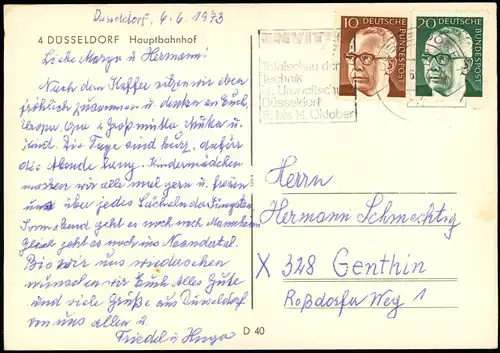 Düsseldorf, 6.6.1973
4 DÜSSELDORF Hauptbahnhof
Liebe Margo u. Hermann!
Nach dem Kaffee sitzen wir eben
fröhlich zusammen u. denken an Euch,
Opa u. Großmutter u.
Die Tage sind kurz, dafür
die Abende lang. Kindermädchen
machen wir alle mal gern u. freuen
uns über jedes Lächeln der Jüngsten.
Sonnabend geht es noch nach Mannheim
Gleich geht es noch ins Neandertal.
Bis wir uns wiedersehen
wünschen wir Euch Alles Gute
und viele Grüße aus Düsseldorf
von uns allen u.
Friedel u Hugo
D 40
ENVITEC
Totalschau der
Technik
Umweltschutz
Düsseldorf
8. bis 14. Oktober
10 DEUTSCHE
BUNDESPOST
20 DEUTSCHE
BUNDESPOST
Herrn
Hermann Schmechtig
X 328 Genthin
Roßdorfer Weg 1